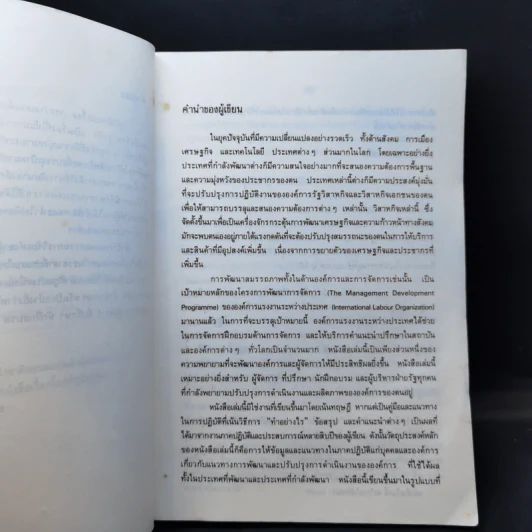 คำนำของผู้เขียน
ในยุคปัจจุบันที่มีความเปลี่ยนแปลงอย่างรวดเร็ว ทั้งด้านสังคม การเมือง
เศรษฐกิจ และเทคโนโลยี ประเทศต่างๆ ส่วนมากในโลก โดยเฉพาะอย่างยิ่ง
ประเทศที่กำลังพัฒนาต่างก็มีความสนใจอย่างมากที่จะสนองความต้องการพื้นฐาน
และความมุ่งหวังของประชากรของตน ประเทศเหล่านี้ต่างก็มีความประสงค์มุ่งมั่น
ที่จะปรับปรุงการปฏิบัติงานขององค์การรัฐวิสาหกิจและวิสาหกิจเอกชนของตน
เพื่อให้สามารถบรรลุและสนองความต้องการต่างๆ เหล่านั้น วิสาหกิจเหล่านี้ ซึ่ง
จัดตั้งขึ้นมาเพื่อเป็นเครื่องจักรกระตุ้นการพัฒนาเศรษฐกิจและความก้าวหน้าทางสังคม
มักจะพบตนเองอยู่ภายใต้แรงกดดันที่จะต้องปรับปรุงสมรรถนะของตนในการให้บริการ
และสินค้าที่มีอุปสงค์เพิ่มขึ้น เนื่องจากการขยายตัวของเศรษฐกิจและประชากรที่
เพิ่มขึ้น
การพัฒนาสมรรถภาพทั้งในด้านองค์การและการจัดการเช่นนั้น เป็น
เป้าหมายหลักของโครงการพัฒนาการจัดการ (The Management Development
Programme) ขององค์การแรงงานระหว่างประเทศ (International Labour Organization)
มานานแล้ว ในการที่จะบรรลุเป้าหมายนี้ องค์การแรงงานระหว่างประเทศได้ช่วย
ในการจัดการฝึกอบรมด้านการจัดการ และให้บริการคำแนะนำปรึกษาในสถาบัน
และองค์การต่างๆ ทั่วโลกเป็นจำนวนมาก หนังสือเล่มนี้เป็นเพียงส่วนหนึ่งของ
ความพยายามที่จะพัฒนาองค์การและผู้จัดการให้มีประสิทธิผลยิ่งขึ้น หนังสือเล่มนี้
เหมาะอย่างยิ่งสำหรับ ผู้จัดการ ที่ปรึกษา นักฝึกอบรม และผู้บริหารฝ่ายรัฐทุกคน
ที่กำลังพยายามปรับปรุงการดำเนินงานและผลิตภาพขององค์การของตนอยู่
หนังสือเล่มนี้มิใช่งานที่เขียนขึ้นมาโดยเน้นทฤษฎี หากแต่เป็นคู่มือและแนวทาง
ในการปฏิบัติที่เน้นวิธีการ "ทำอย่างไร" ข้อสรุป และคำแนะนำต่างๆ เป็นผลที่
ได้มาจากงานภาคปฏิบัติและประสบการณ์หลายสิบปีของผู้เขียน ดังนั้นวัตถุประสงค์หลัก
ของหนังสือเล่มนี้ก็คือการให้ข้อมูลและแนวทางในภาคปฏิบัติแก่บุคคลและองค์การ
เกี่ยวกับแนวทางการพัฒนาและปรับปรุงการดำเนินงานขององค์การ ที่ใช้ได้ผล
ทั้งในประเทศที่พัฒนาและประเทศที่กำลังพัฒนา หนังสือนี้เขียนขึ้นมาในรูปแบบที่